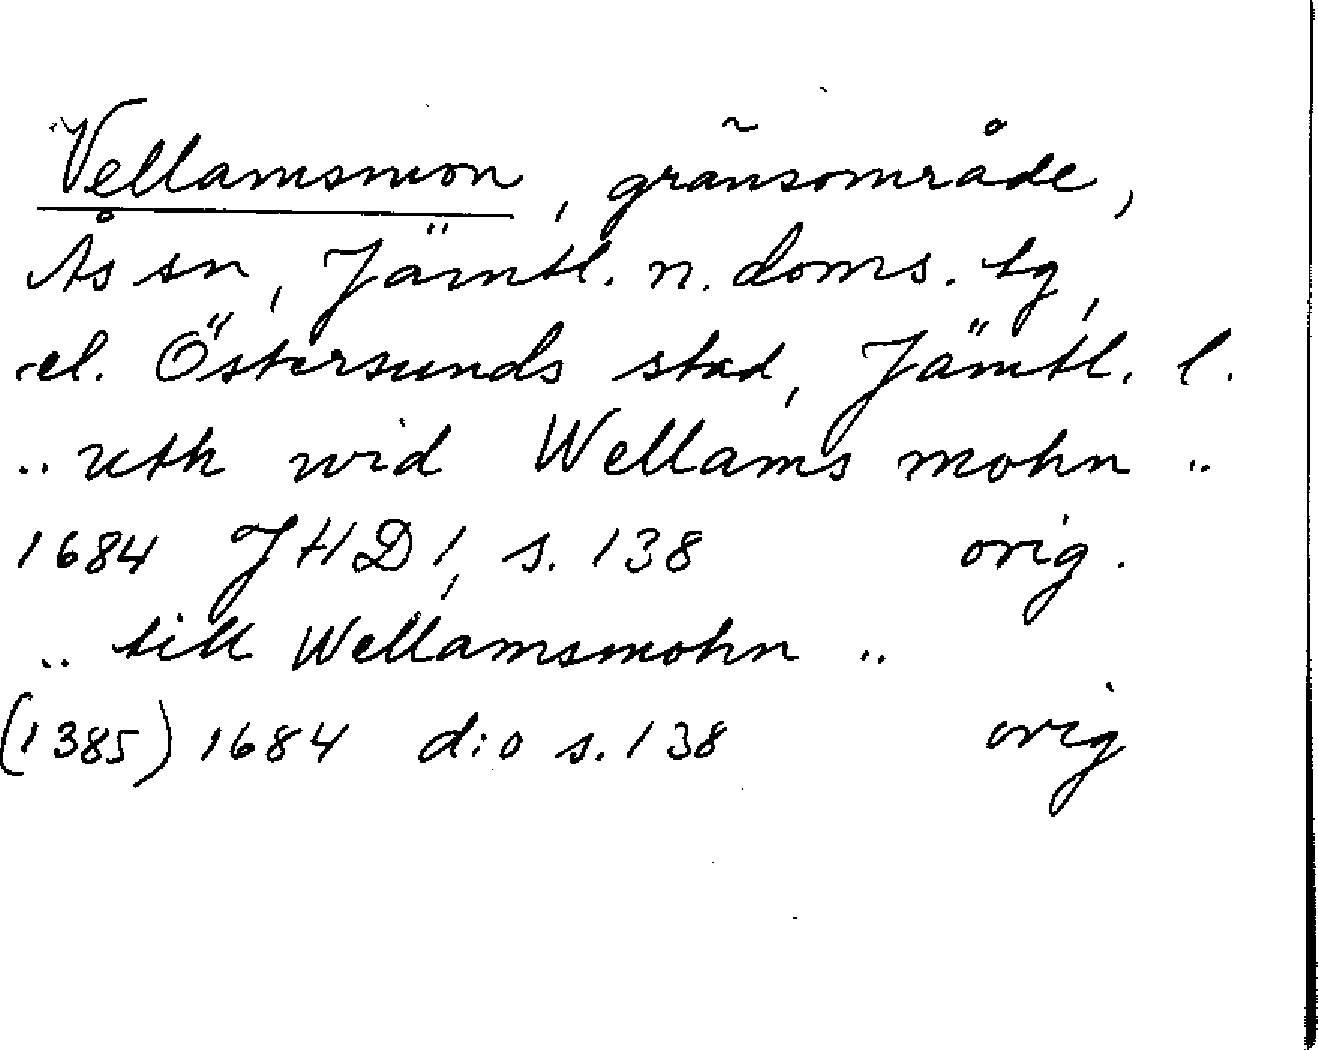 Vellamsmon, gränsområde,
Ås sn, Jämtl. n. doms. tg,
el. Östersunds stad, Jämtl. l.
.. uth wid Wellams mohn ..
1684 JHD 1, s. 138 orig.
.. till Wellamsmohn ..
(1385) 1684 d:o s. 138 orig